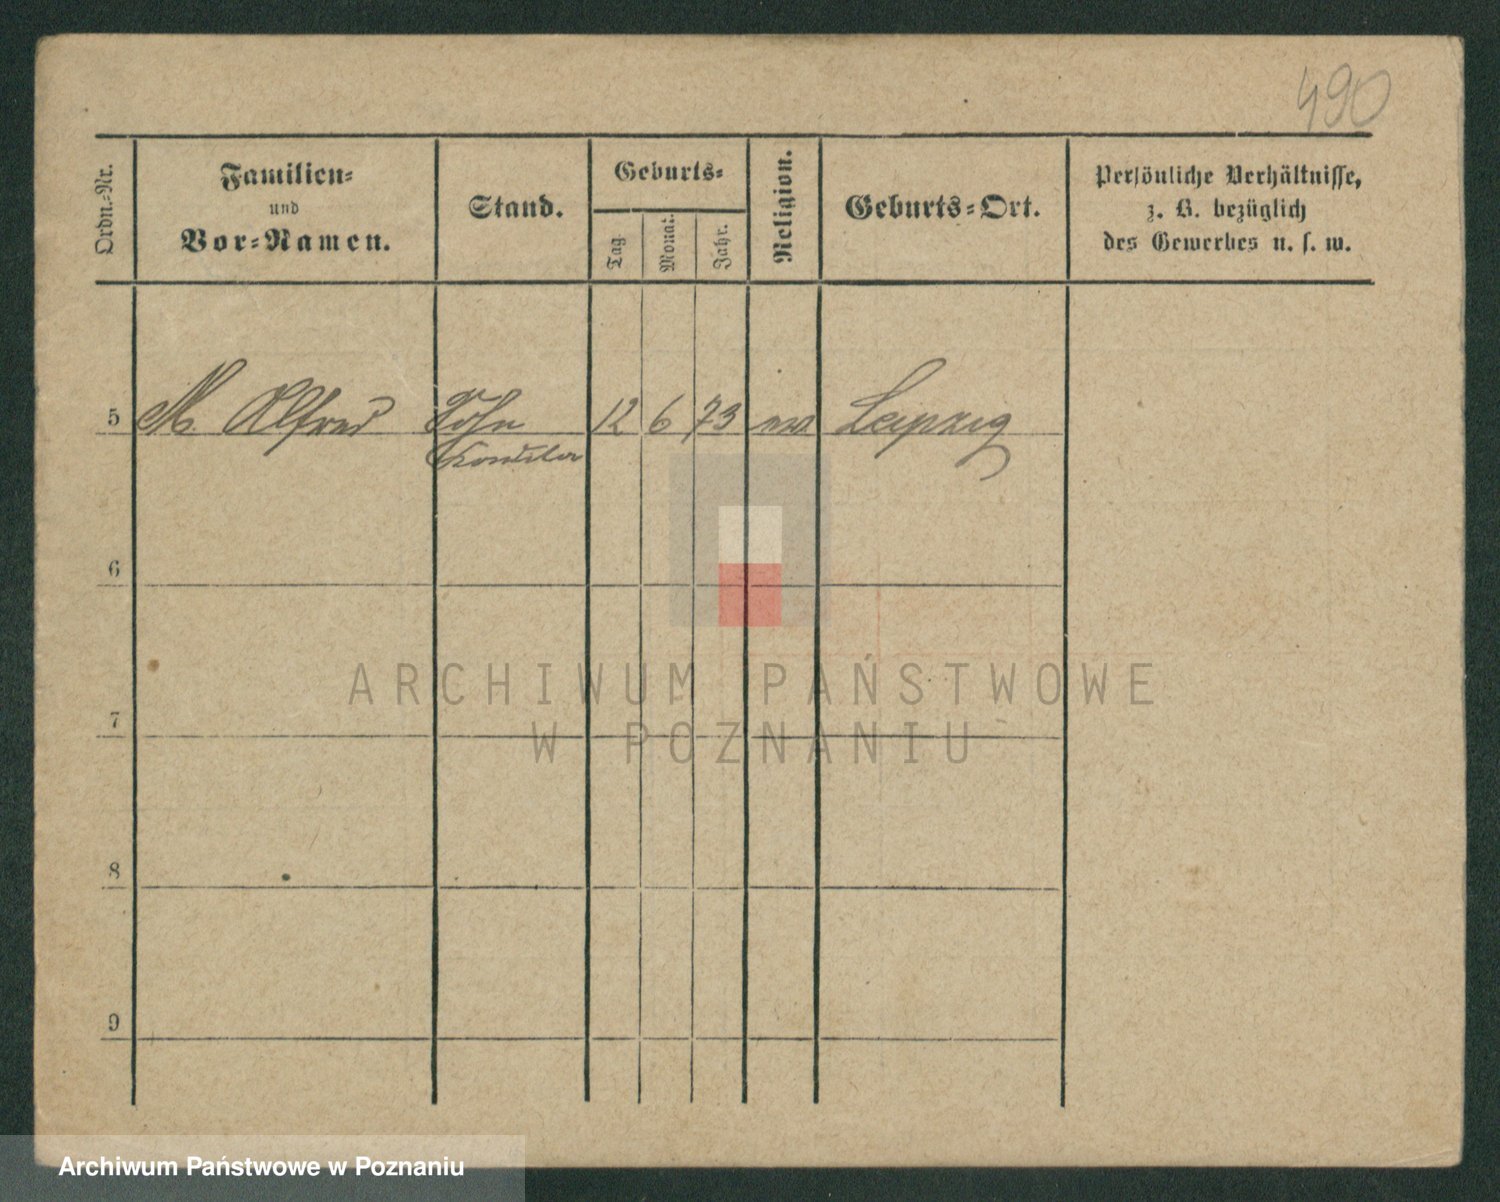 490
Ordn.-Nr.
Familien-
und
Vor-Namen.
Stand.
Geburts-
Tag
Monat.
Jahr.
Religion.
Geburts-Ort.
Persönliche Verhältnisse,
z. B. bezüglich
des Gewerbes u. s. w.
5 M. Alfred Sohn 12 6 73 Leipzig
6
7
8
9
ARCHIWUM PAŃSTWOWE
W POZNANIU
Archiwum Państwowe w Poznaniu